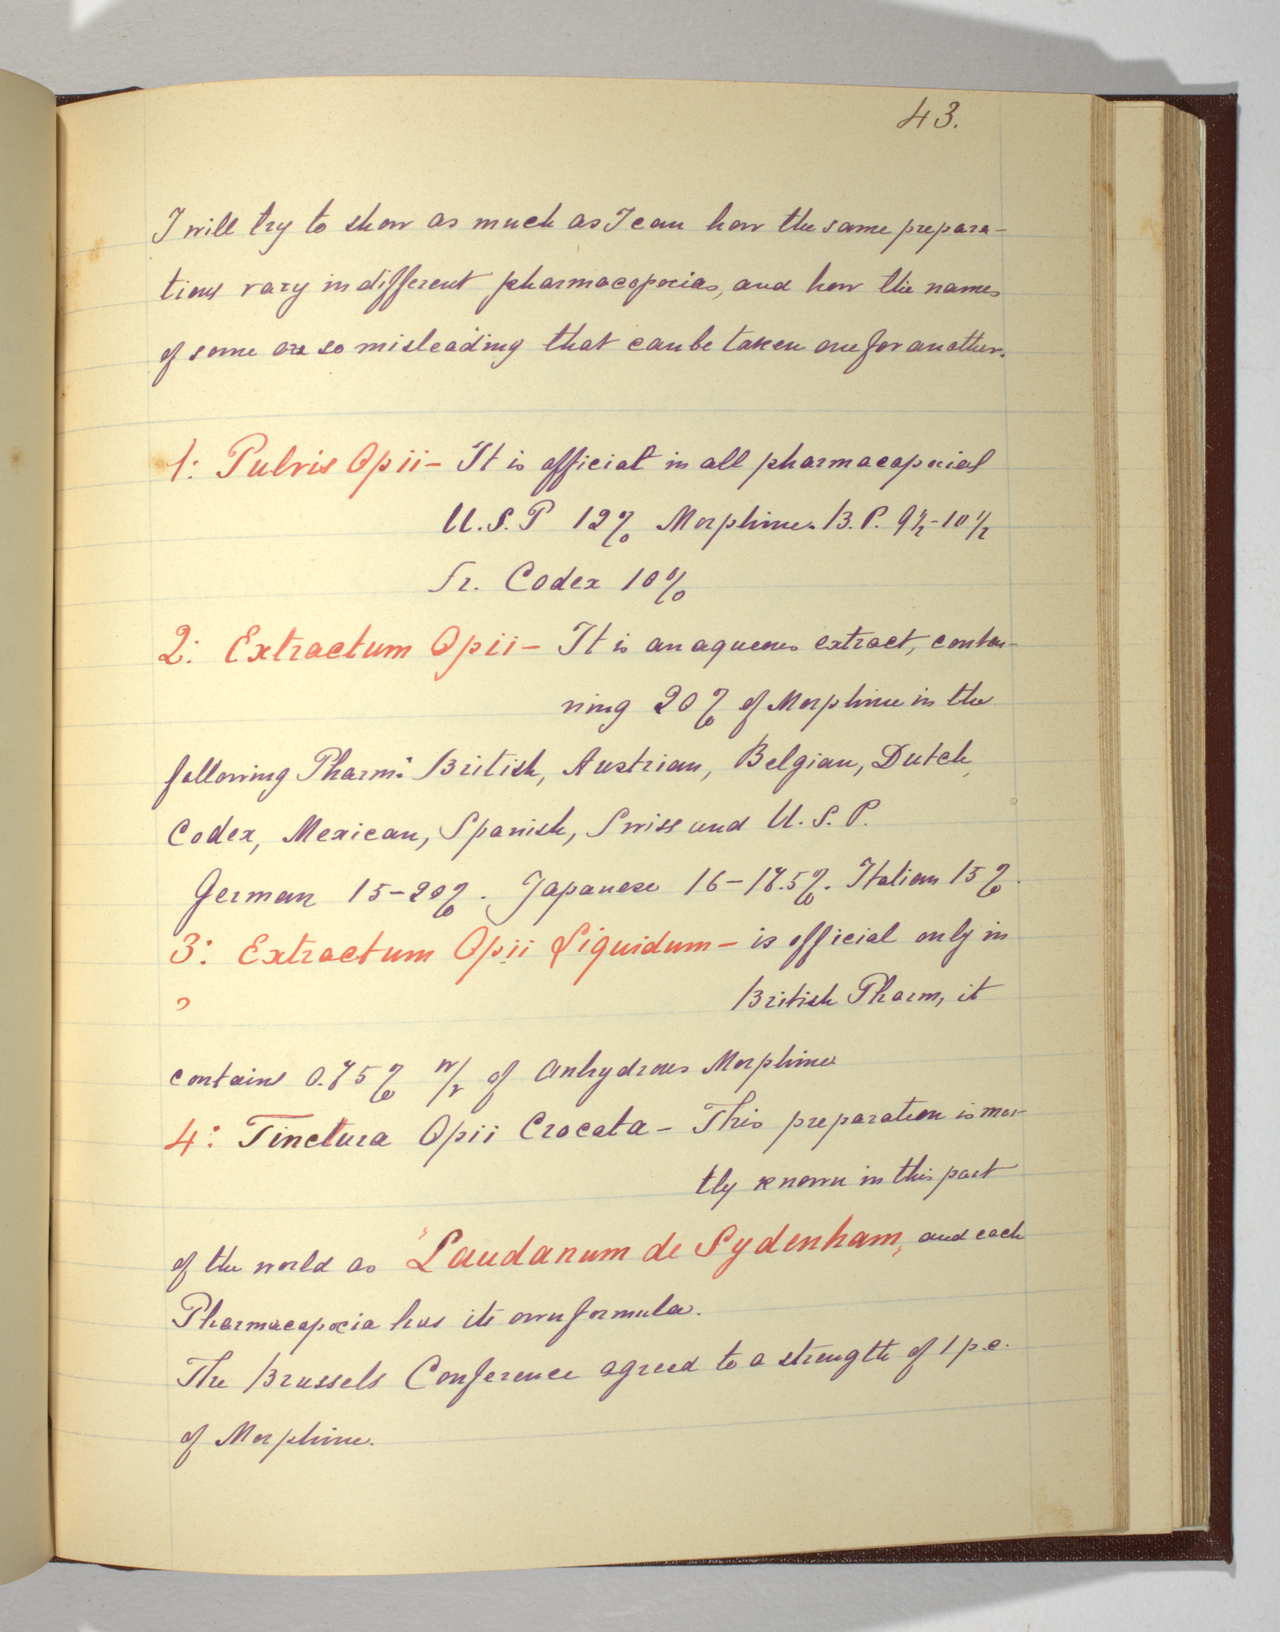 43.
I will try to show as much as I can how the same prepara-
tions vary in different pharmacopoeias, and how the names
of some are so misleading that can be taken one for another.
1: Pulvis Opii - It is official in all pharmacopoeias
U.S.P 12% Morphine. B.P. 9½-10½
Fr. Codex 10%
2: Extractum Opii - It is an aqueous extract, contai-
ning 20% of Morphine in the
following Pharm: British, Austrian, Belgian, Dutch,
Codex, Mexican, Spanish, Swiss and U.S.P.
German 15-20%. Japanese 16-17.5%. Italian 15%.
3: Extractum Opii Liquidum - is official only in
British Pharm, it
contains 0.75% w/v of Anhydrous Morphine
4: Tinctura Opii Crocata - This preparation is mos-
tly known in this part
of the world as "Laudanum de Sydenham, and each
Pharmacopoeia has its own formula.
The Brussels Conference agreed to a strength of 1 p.c.
of Morphine.